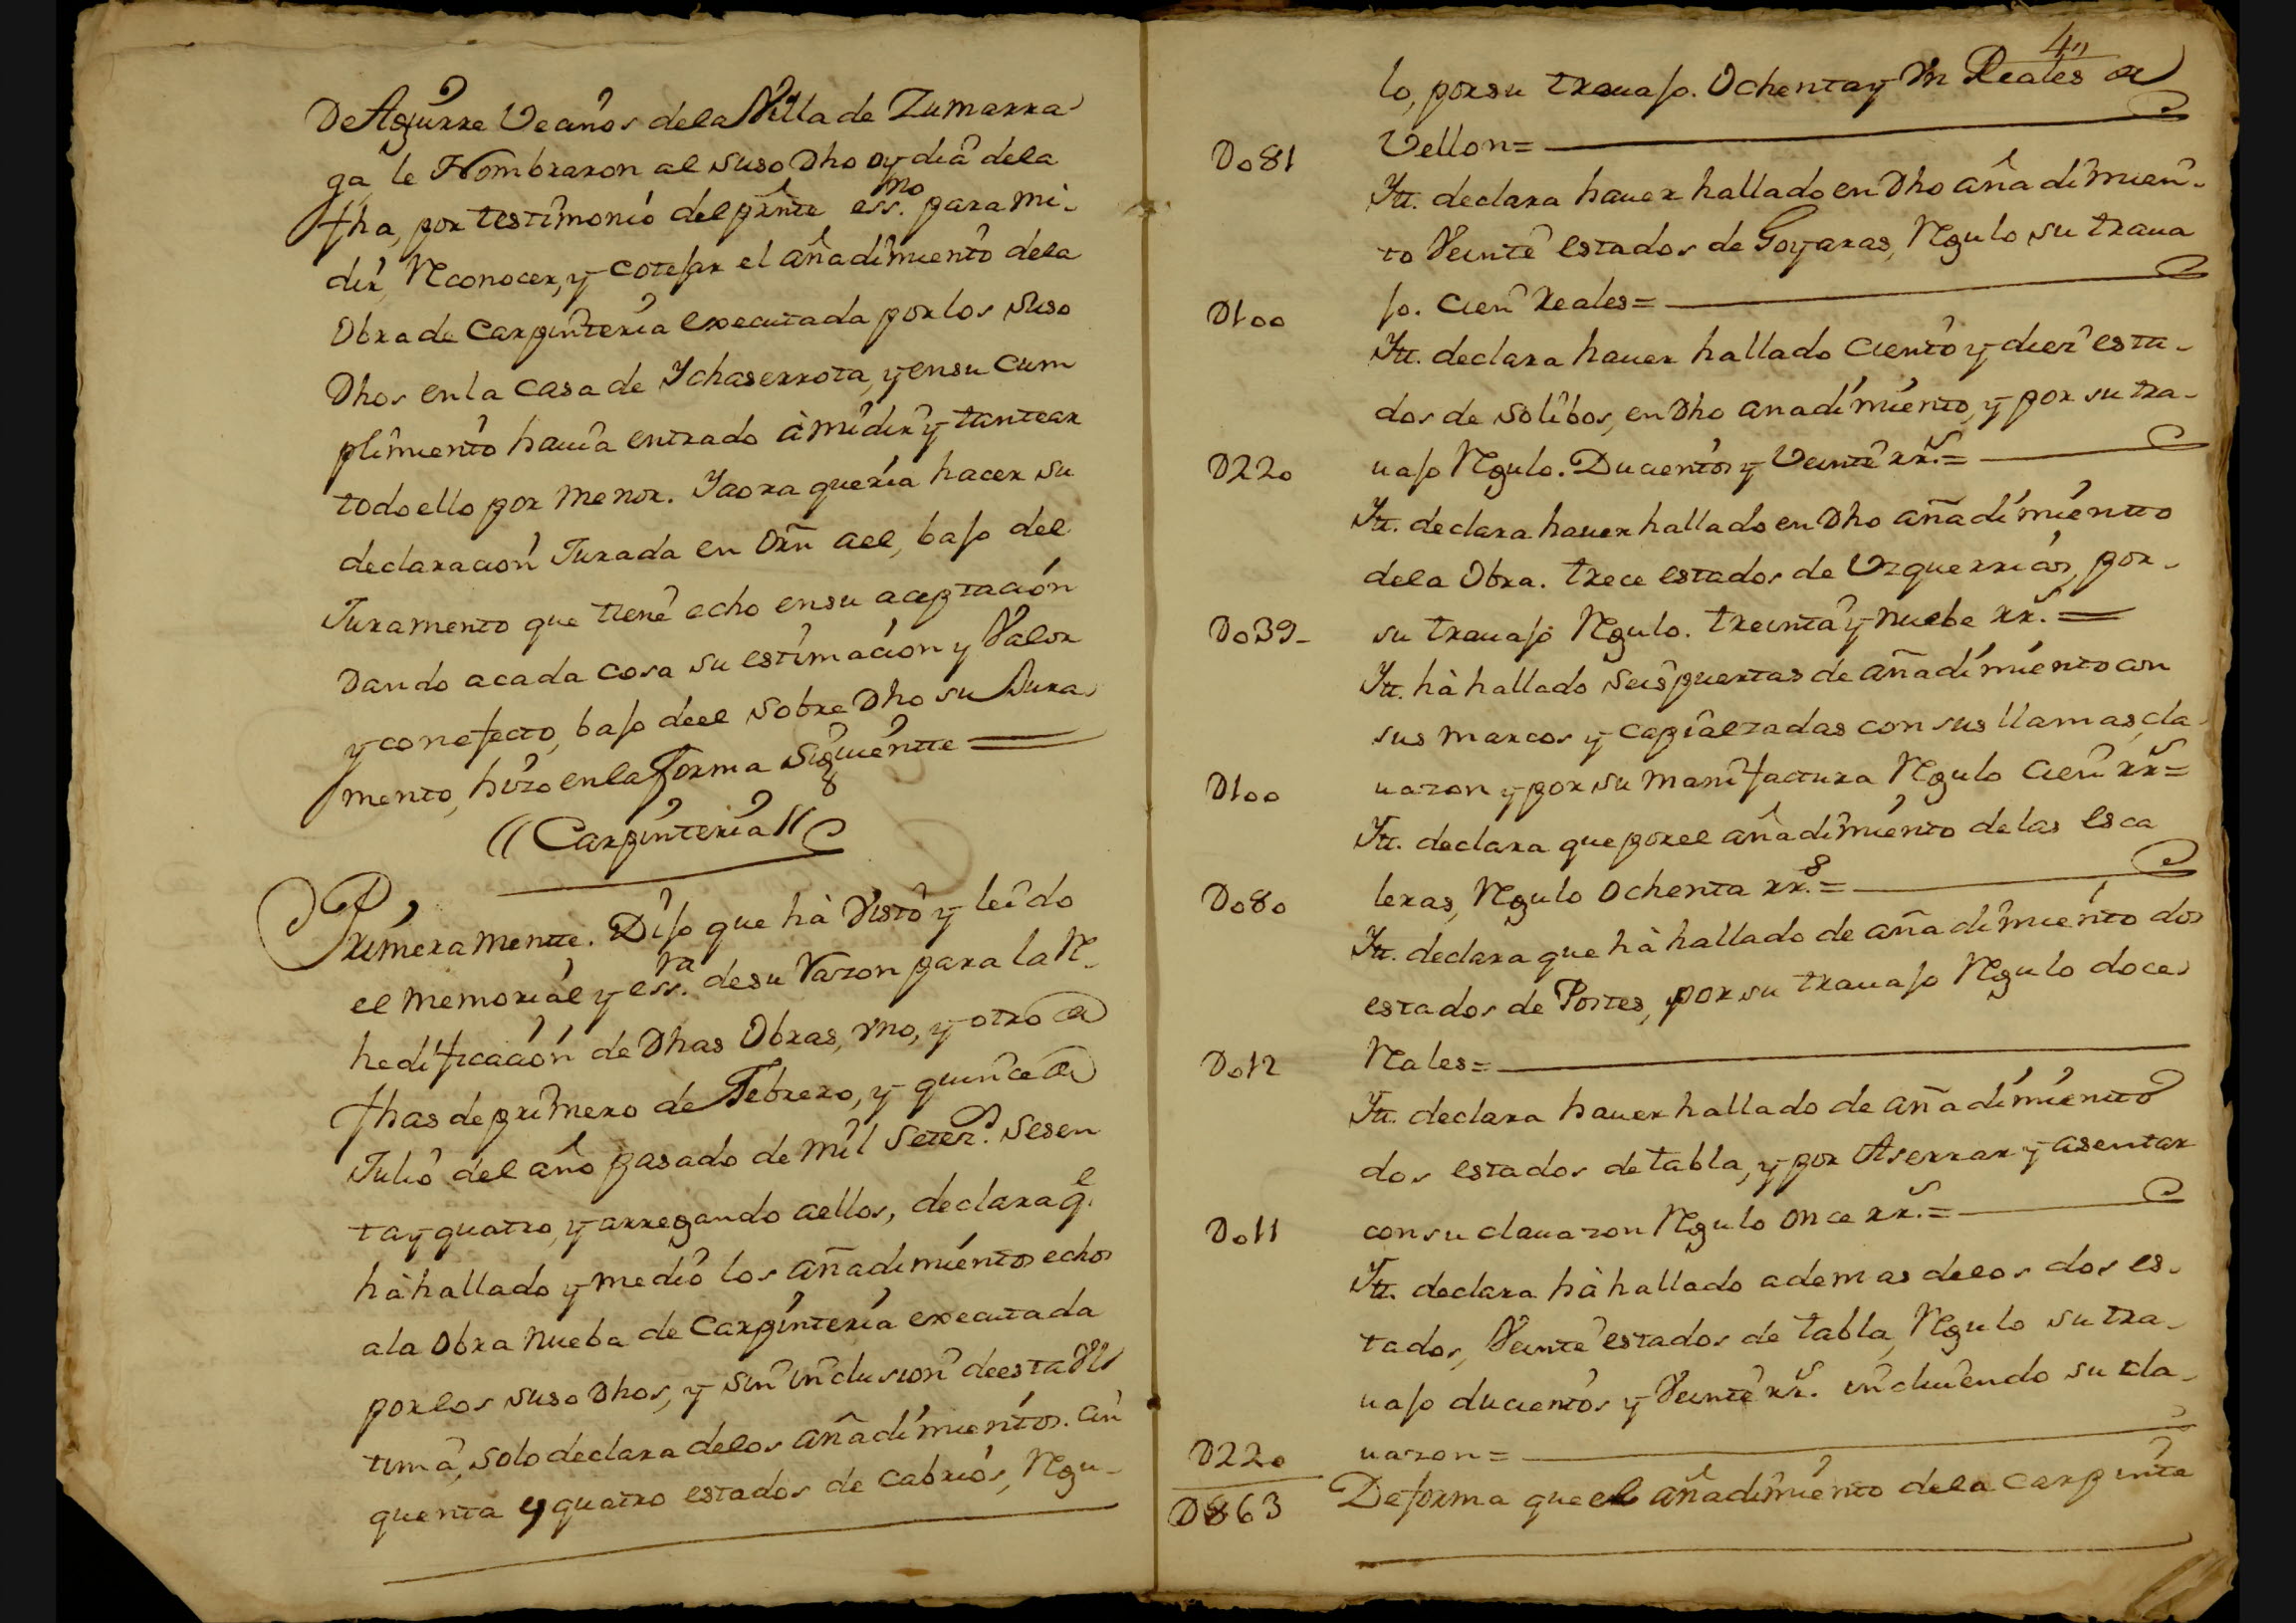 De Aguirre Vecinos dela Villa de Zumarra
ga, le Nombraron al suso Dho oy dia dela
fha, por testimonio del pnte essno. para mi-
dir, Reconocer, y cotejar el añadimiento dela
Obra de Carpinteria executada por los suso
Dhos en la Casa de Ychaserrota, y en su Cum
plimiento hauia entrado à midir y tantear
todo ello por menor. Y aora queria hacer su
declaracion Jurada en Orn a el, bajo del
Juramento que tiene echo en su aceptación
Dando a cada cosa su estimacion y Valor
y con efecto, bajo de el sobre Dho su Jura
mento, hizo en la forma Siguientte =
((Carpinteria))
Primeramentte. Dijo que hà Visto y leido
el Memorial y essra. de su Razon para la Re-
hedificación de Dhas Obras, vno, y otro de
fhas de primero de Febrero, y quince de
Julio del año pasado de mil Setez.s sesen
ta y quatro, y arregando a ellos, declara q.e
hà hallado y medio los añadimientos echos
a la Obra Nueba de Carpinteria executada
por los suso Dhos, y sin inclusion de esta Vl
tima, solo declara de los añadimientos. Cin
quenta y quatro estados de Cabrios, Regu-
4"
lo, por su trauajo. Ochenta y Vn Reales de
D081 Vellon=
Ytt. declara hauer hallado en Dho añadimien-
to Veinte estados de Goyaras, Regulo su traua
D100 jo. Cien Reales=
Ytt. declara hauer hallado Ciento y diez esta-
dos de Solibos, en Dho anadimiento, y por su tra-
D220 uajo Regulo. Ducientos y Veinte rr.s=
Ytt. declara hauer hallado en Dho añadimientto
dela Obra. trece estados de Vzquerrias, por-
D039- su trauajo Regulo. treinta y nuebe rr.s =
Ytt. hà hallado seis puertas de añadimiento con
sus marcos y capialzadas con sus llamas, cla
D100 uazon y por su manifactura Regulo Cien rr.s=
Ytt. declara que por el añadimiento de las esca
D080 leras, Regulo Ochenta rr.s=
Ytt. declara que hà hallado de añadimiento dos
estados de Postes, por su trauajo Regulo doce
D012 Reales=
Ytt. declara hauer hallado de añadimientto
dos estados de tabla, y por Aserrar y asentar
D011 con su clauazon Regulo Once rr.s=
Ytt. declara hà hallado ademas de los dos es-
tados, Veinte estados de tabla, Regulo su tra-
uajo ducientos y Veinte rr.s incluiendo su cla-
D220 uazon=
D863 De forma que el añadimiento de la Carpinte